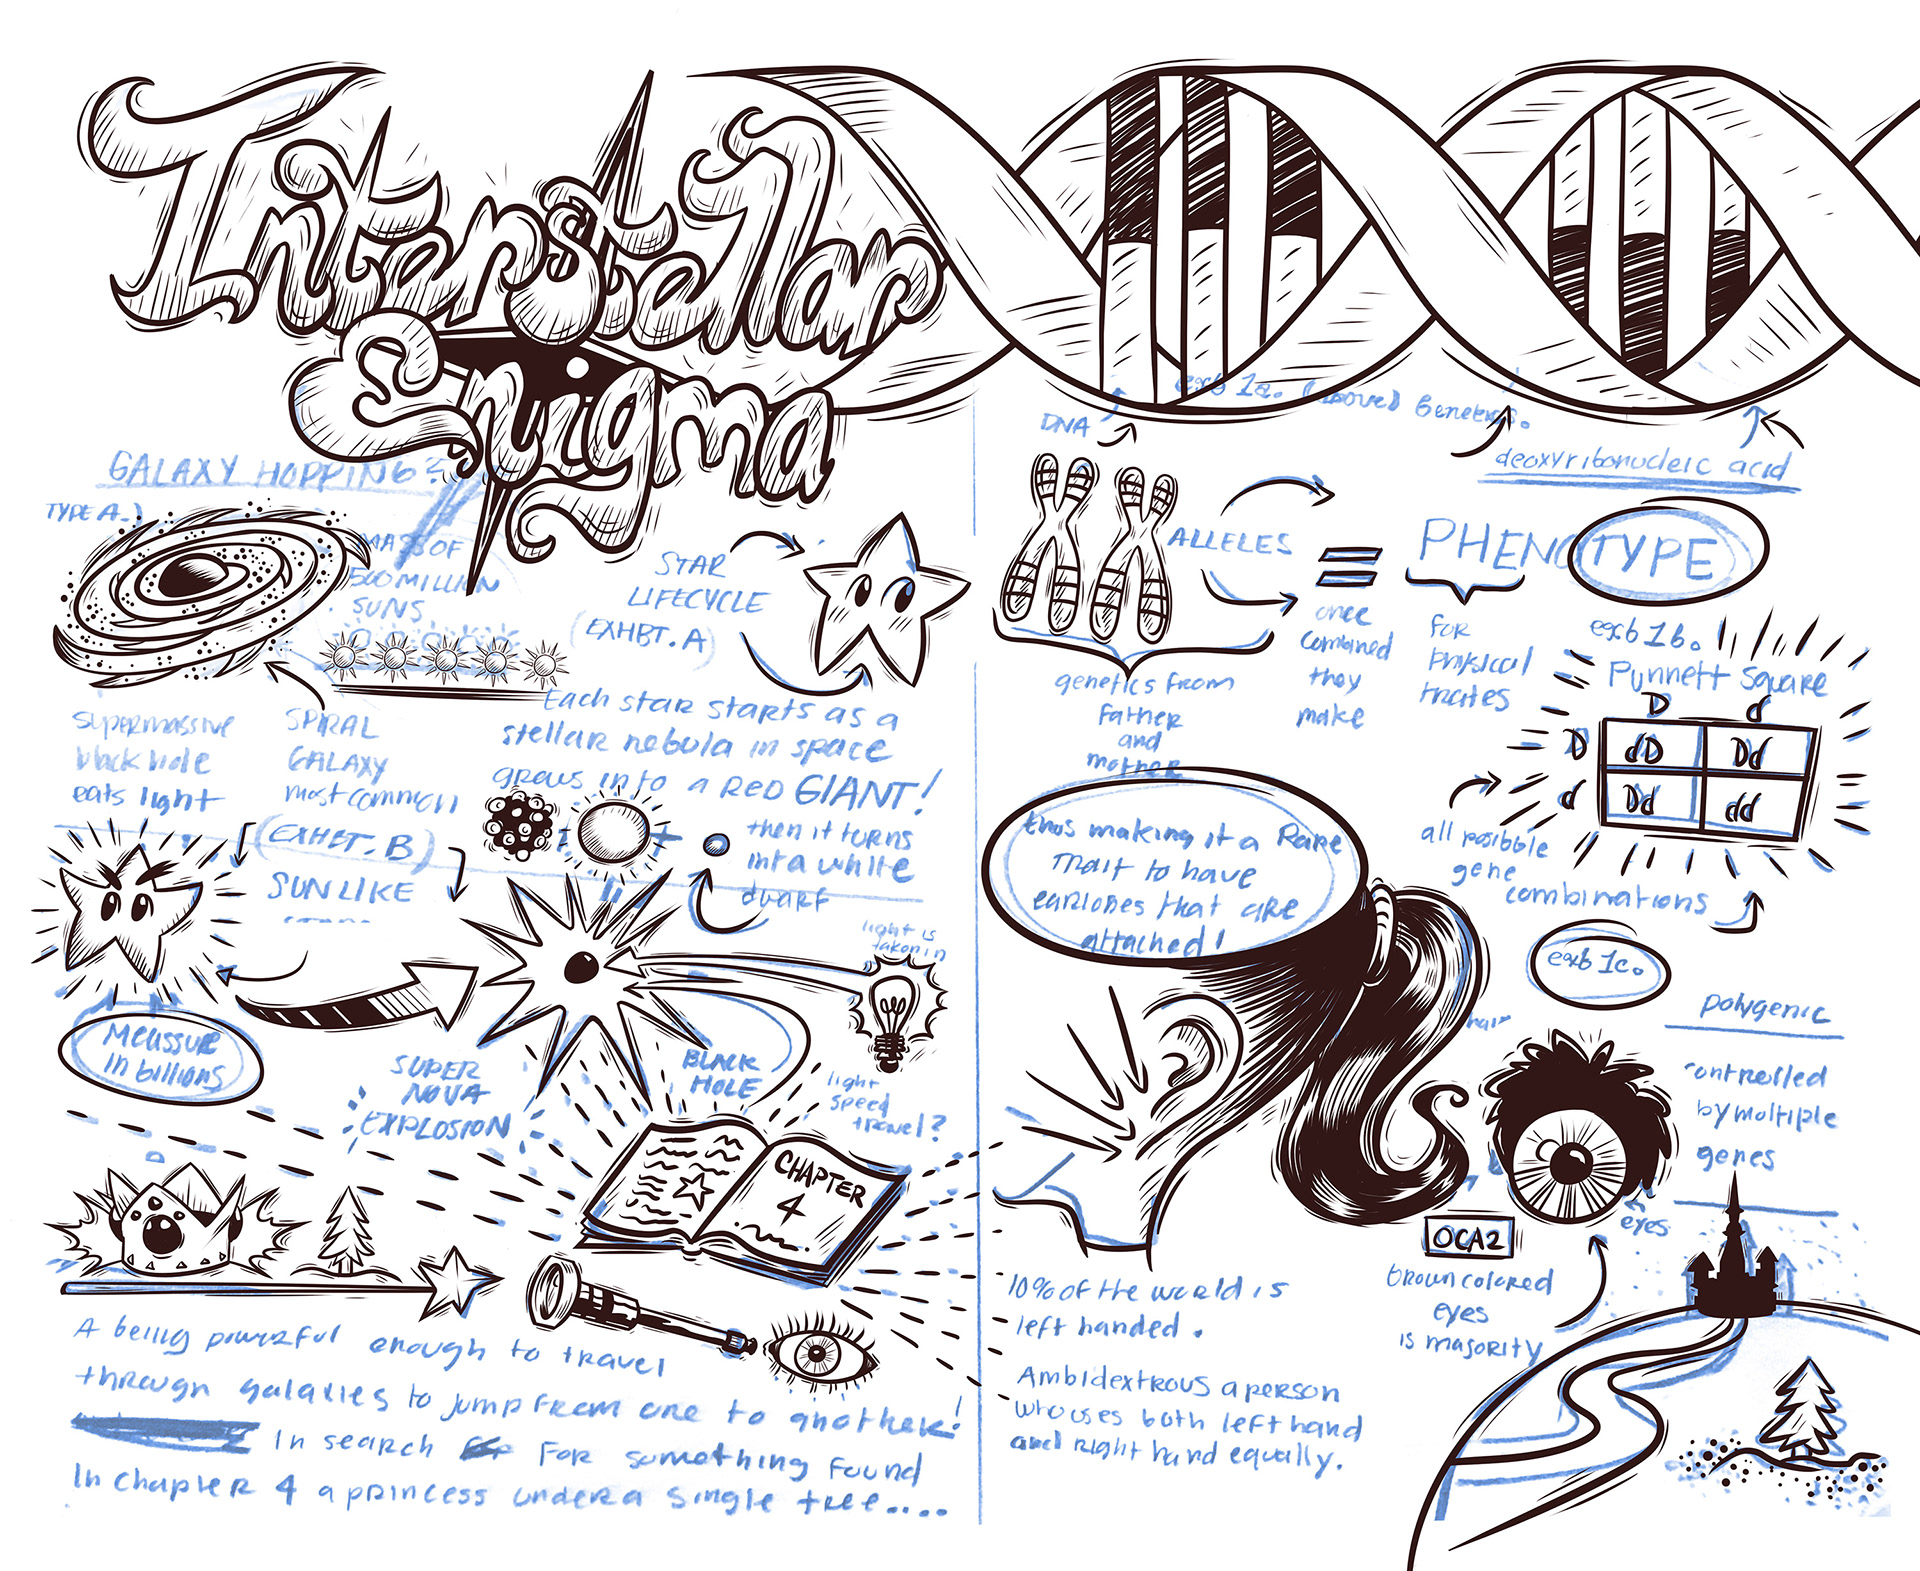 Interstellar
Enigma
GALAXY HOPPING?
TYPE A.
MASS OF
500 MILLION
SUNS
STAR
LIFECYCLE
(EXHBT. A)
supermassive
black hole
eats light
SPIRAL
GALAXY
most common
Each star starts as a
stellar nebula in space
grows into a RED GIANT!
then it turns
into a white
dwarf
(EXHBT. B)
SUN LIKE
Meassure
in billions
SUPER
NOVA
EXPLOSION
BLACK
HOLE
light is
taken in
light
speed
travel?
CHAPTER
4
A being powerful enough to travel
through galaxies to jump from one to another!
In search for something found
In chapter 4 a princess under a single tree....
DNA
exb 1a. (above) Genetics.
deoxyribonucleic acid
ALLELES
=
PHENOTYPE
genetics from
father
and
mother
once
combined
they
make
for
physical
traites
exb 1b.
Punnett Square
D d
D dD Dd
d Dd dd
all posibble
gene
combinations
thus making it a Rare
trait to have
earlobes that are
attached!
exb 1c.
polygenic
controlled
by moltiple
genes
hair
eyes
OCA2
brown colored
eyes
is majority
10% of the world is
left handed.
Ambidextrous a person
who uses both left hand
and right hand equally.